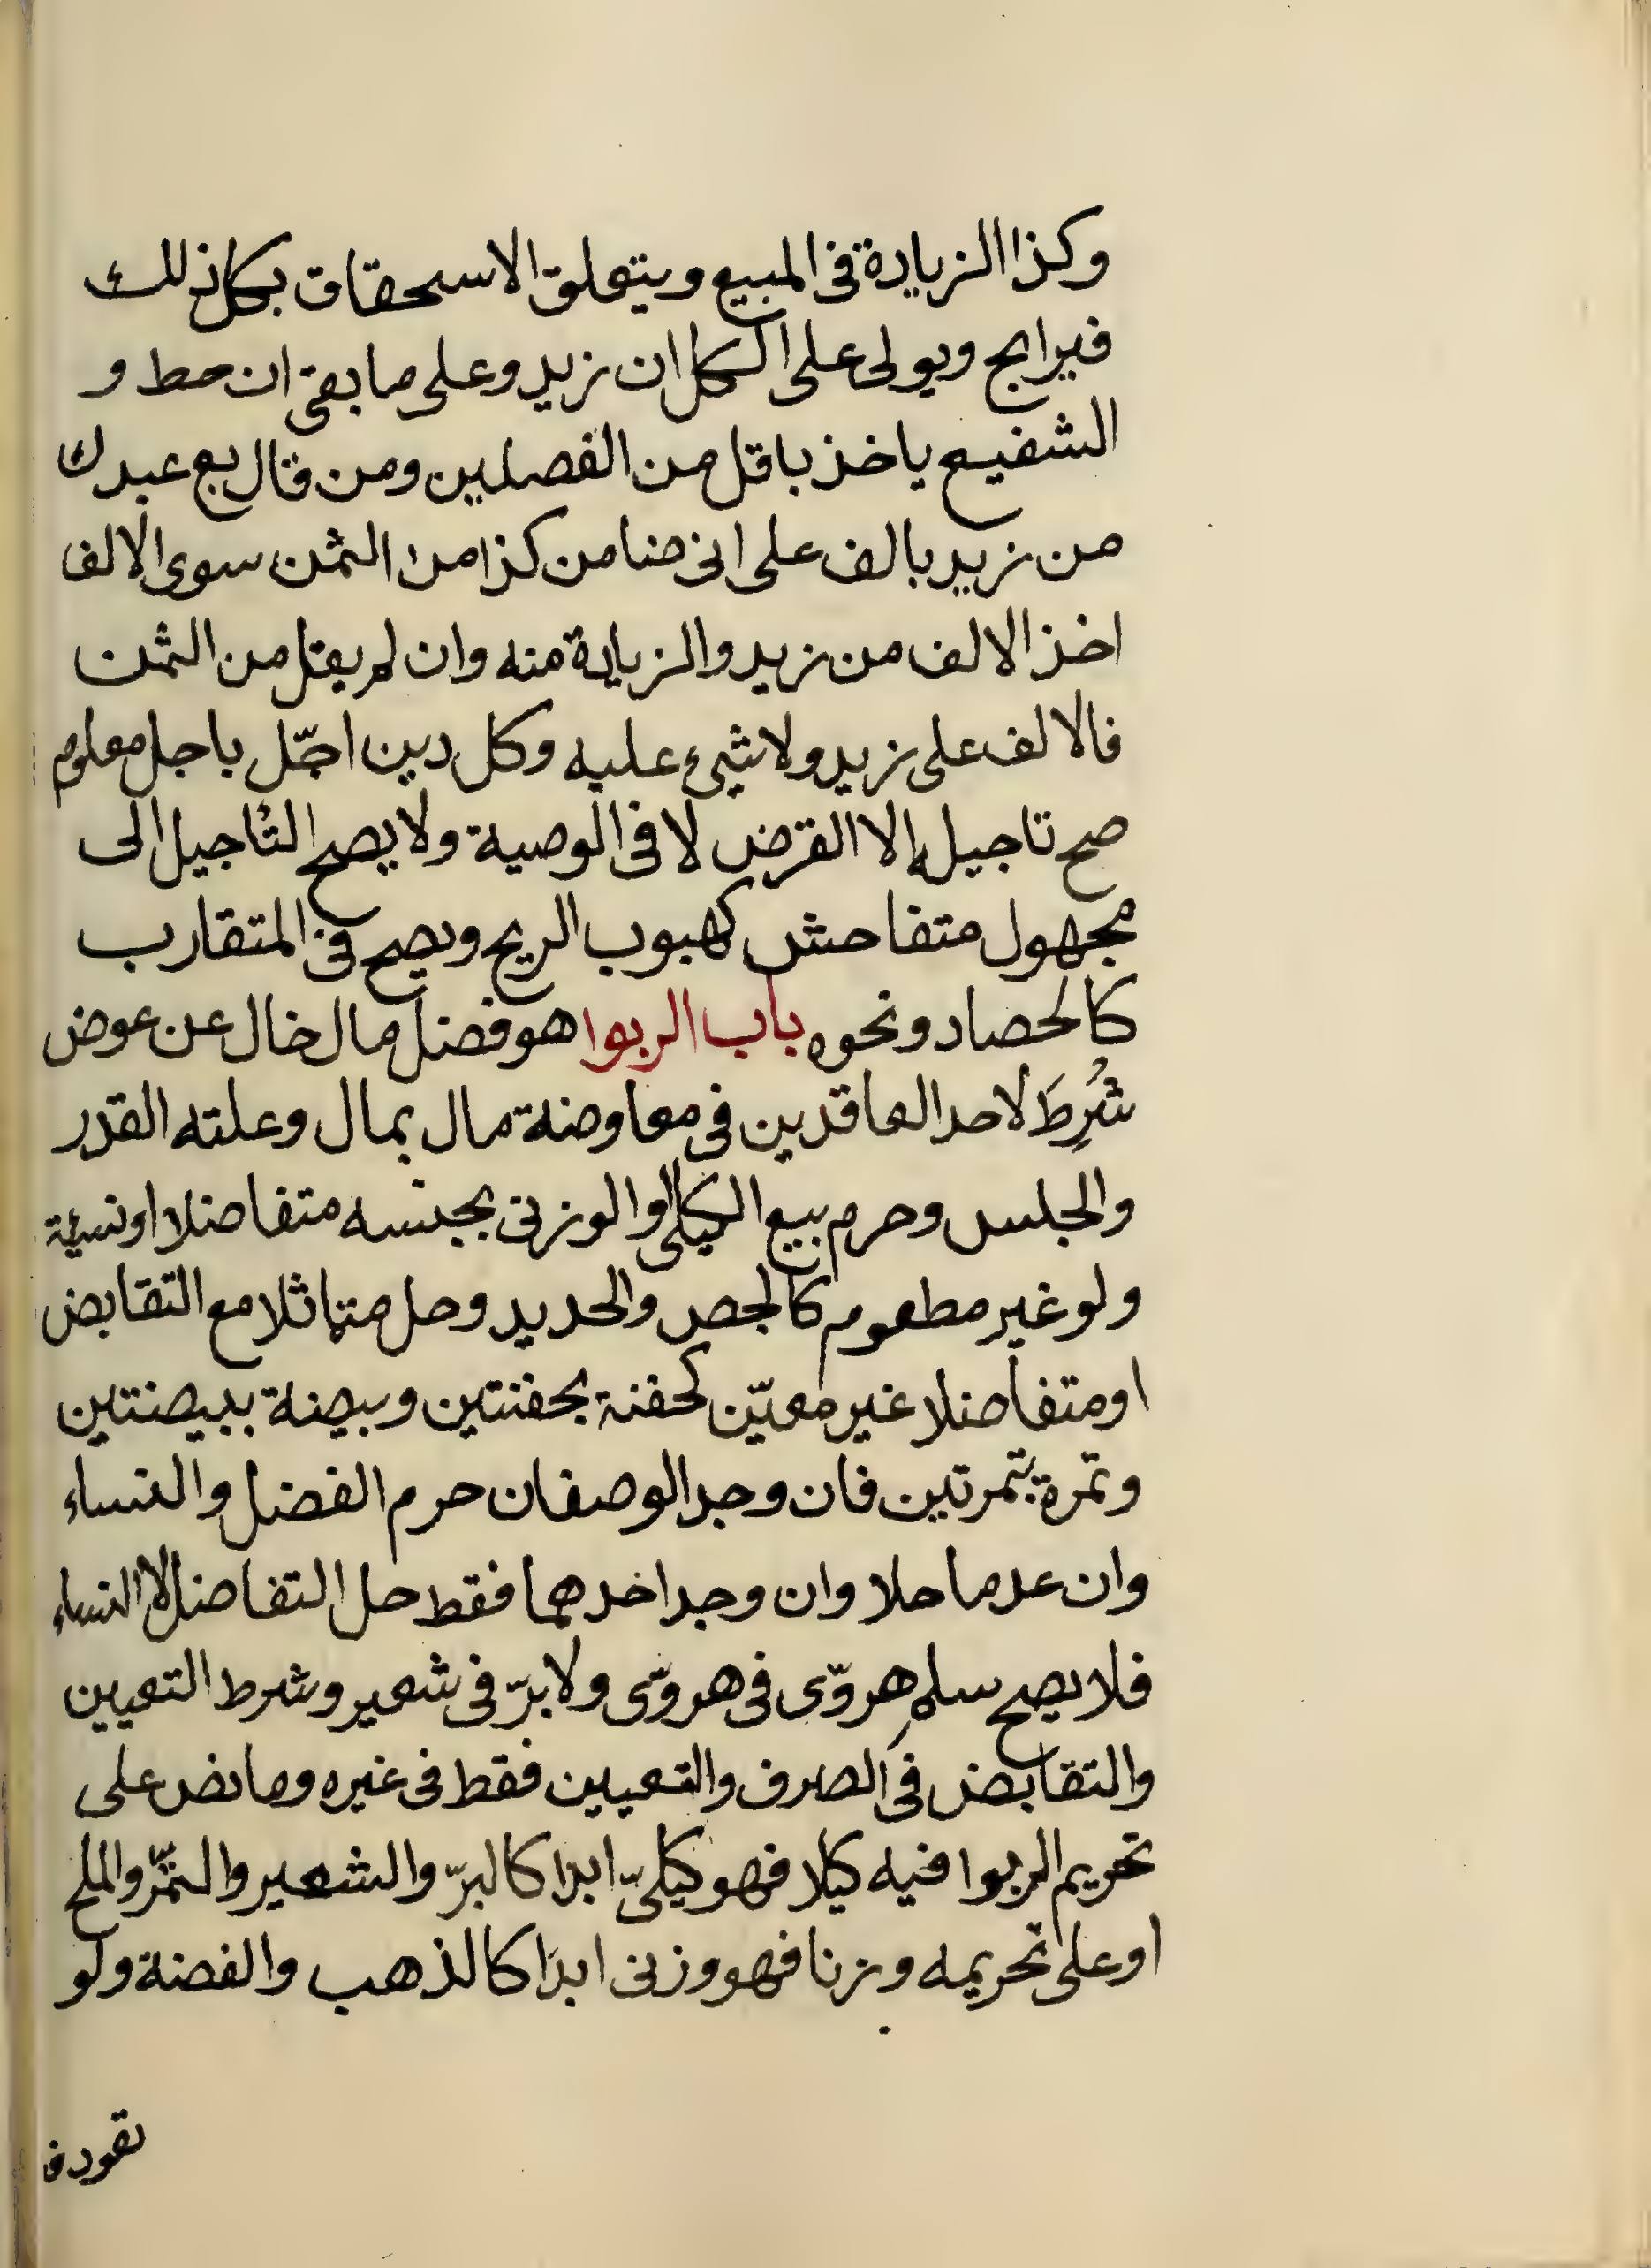 وكذا الزيادة فى المبيع ويتعلق الاستحقاق بكل ذلك
فيرابح ويولى على الكل ان زيد وعلى ما بقى ان حط و
الشفيع ياخذ باقل من الفصلين ومن قال بع عبدك
من زيد بالف على انى ضامن كذا من الثمن سوى الالف
اخذ الالف من زيد والزيادة منه وان لم يقل من الثمن
فالالف على زيد ولا شيئ عليه وكل دين اجّل باجل معلوم
صح تاجيله إلا القرض لا فى الوصية ولا يصح التأجيل الى
مجهول متفاحش كهبوب الريح ويصح فى المتقارب
كالحصاد ونحوه باب الربوا هو فضل مال خال عن عوض
شُرِطَ لاحد العاقدين فى معاوضة مال بمال وعلته القدر
والجلس وحرم بيع الكيلى والوزنى بجنسه متفاضلا او نسيئة
ولو غير مطعوم كالجص والحديد وحل متماثلا مع التقابض
او متفاضلا غير معيّن كحفنة بحفنتين وبيضة ببيضتين
وتمرة بتمرتين فان وجد الوصفان حرم الفضل والنساء
وان عدما حلا وان وجد اخدهما فقط حل التفاضل لا النساء
فلا يصح سلم هروّى فى هروّى ولا برّ فى شعير وشرط التعيين
والتقابض فى الصرف والتعيين فقط فى غيره وما نص على
تحريم الربوا فيه كيلا فهو كيلىّ ابدا كالبرّ والشعير والتمّر والملح
او على تحريمه وزنا فهو وزنى ابدًا كالذهب والفضة ولو